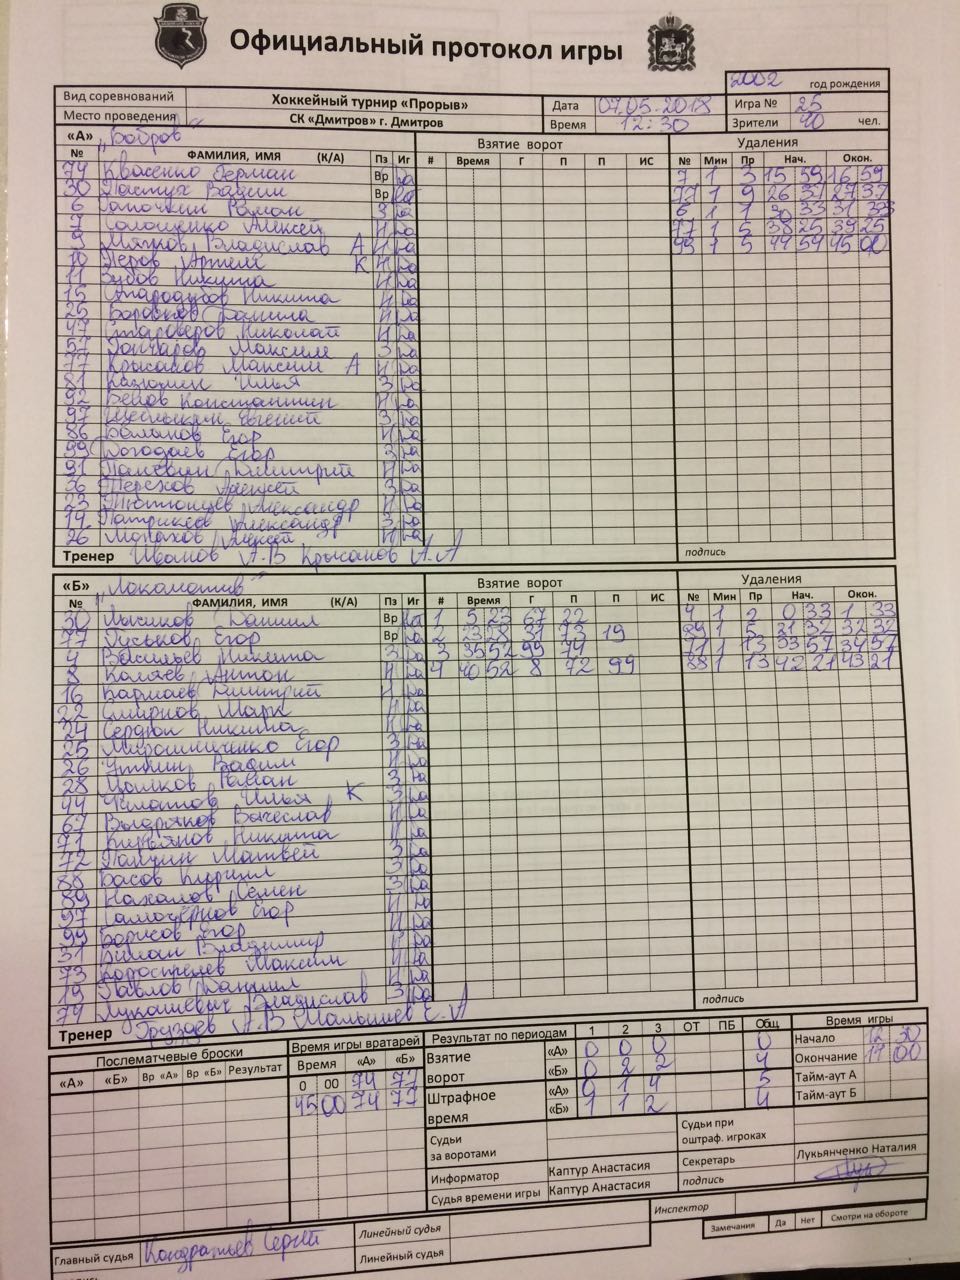 Официальный протокол игры
2002 год рождения
Вид соревнований Хоккейный турнир «Прорыв» Дата 07.05.2018 Игра № 25
Место проведения СК «Дмитров» г. Дмитров Время 12:30 Зрители 40 чел.
«А» „Бобров" Взятие ворот Удаления
№ ФАМИЛИЯ, ИМЯ (К/А) Пз Иг # Время Г П П ИС № Мин Пр Нач. Окон.
74 Квасенко Герман Вр Да 7 1 3 15 59 16 59
30 Пастух Вадим Вр 77 1 9 26 37 27 37
6 Роман З Да 6 1 1 30 33 31 33
7 Алексей Н Да 77 1 5 38 25 39 25
9 Мягков Владислав А Н Да 99 1 5 44 59 45 00
10 Перов Артём К Н Да
11 Зубов Никита Н Да
15 Стародубов Никита Н Да
25 Боровков Данила Н Да
47 Староверов Николай Н Да
57 Гончаров Максим З Да
77 Крысанов Максим А Н Да
81 Илья З Да
92 Белов Константин Н Да
97 Евгений З Да
86 Баланов Егор Н Да
99 Догодаев Егор З Да
91 Паневин Димитрий Н Да
36 Терехов Алексей З Да
23 Александр Н Да
14 Патрикеев Александр З Да
26 Малахов Алексей Н Да
Тренер Иванов А.В Крысанов А.А подпись
«Б» „Локомотив" Взятие ворот Удаления
№ ФАМИЛИЯ, ИМЯ (К/А) Пз Иг # Время Г П П ИС № Мин Пр Нач. Окон.
30 Лысиков Даниил Вр 1 5 23 67 22 4 1 2 0 33 1 33
77 Гуськов Егор Вр Да 2 23 28 31 73 19 89 1 5 31 32 32 32
4 Васильев Никита З Да 3 35 52 99 79 71 1 13 33 57 34 57
8 Каляев Антон Н Да 4 40 52 8 72 99 88 1 13 42 21 43 21
16 Кармаев Димитрий Н Да
22 Смирнов Марк Н Да
24 Сердюк Никита Н Да
25 Мирошниченко Егор З Да
26 Уткин Вадим Н Да
28 Цомков Роман З Да
44 Филатов Илья К З Да
67 Выдряков Вячеслав Н Да
71 Кирьянов Никита Н Да
72 Папушин Матвей З Да
88 Басов Кирилл З Да
89 Нахалов Семен З Да
97 Самочернов Егор Н Да
99 Борисов Егор Н Да
31 Владимир Н Да
73 Коростелев Максим Н Да
19 Павлов Даниил Н Да
79 Лукашевич Владислав З Да
Тренер Груздев А.В Малышев С.А подпись
Послематчевые броски Время игры вратарей Результат по периодам 1 2 3 ОТ ПБ Общ Время игры
«А» «Б» Вр «А» Вр «Б» Результат Время «А» «Б»
Взятие ворот «А» 0 0 0 0 Начало 12 30
«Б» 0 2 2 4 Окончание 14 00
0 00 74 77
45 00 74 77
Штрафное время «А» 0 1 4 5 Тайм-аут А
«Б» 1 1 2 4 Тайм-аут Б
Судьи за воротами Судьи при оштраф. игроках
Информатор Каптур Анастасия Секретарь Лукьянченко Наталия
Судья времени игры Каптур Анастасия подпись
Инспектор
Главный судья Кондратьев Сергей Линейный судья
Линейный судья
Замечания Да Нет Смотри на обороте